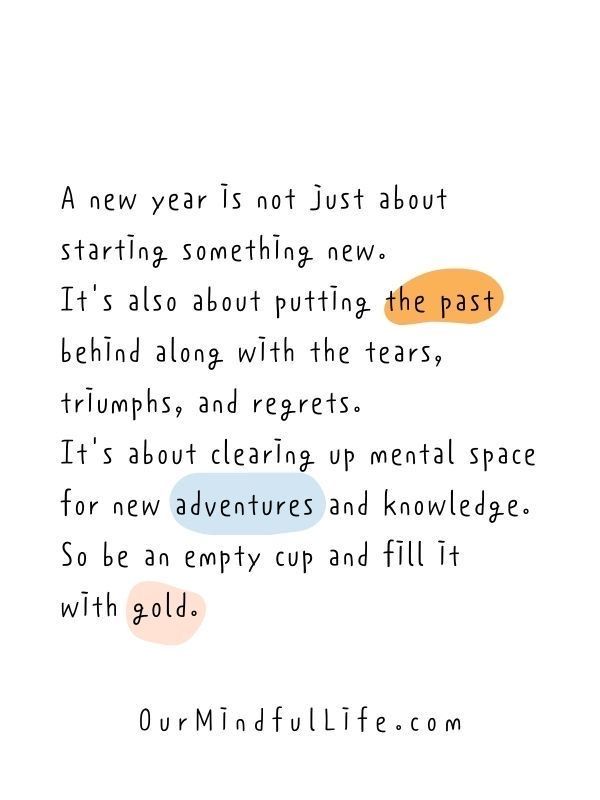 A new year is not just about
starting something new.
It's also about putting the past
behind along with the tears,
triumphs, and regrets.
It's about clearing up mental space
for new adventures and knowledge.
So be an empty cup and fill it
with gold.
OurMindfulLife.com